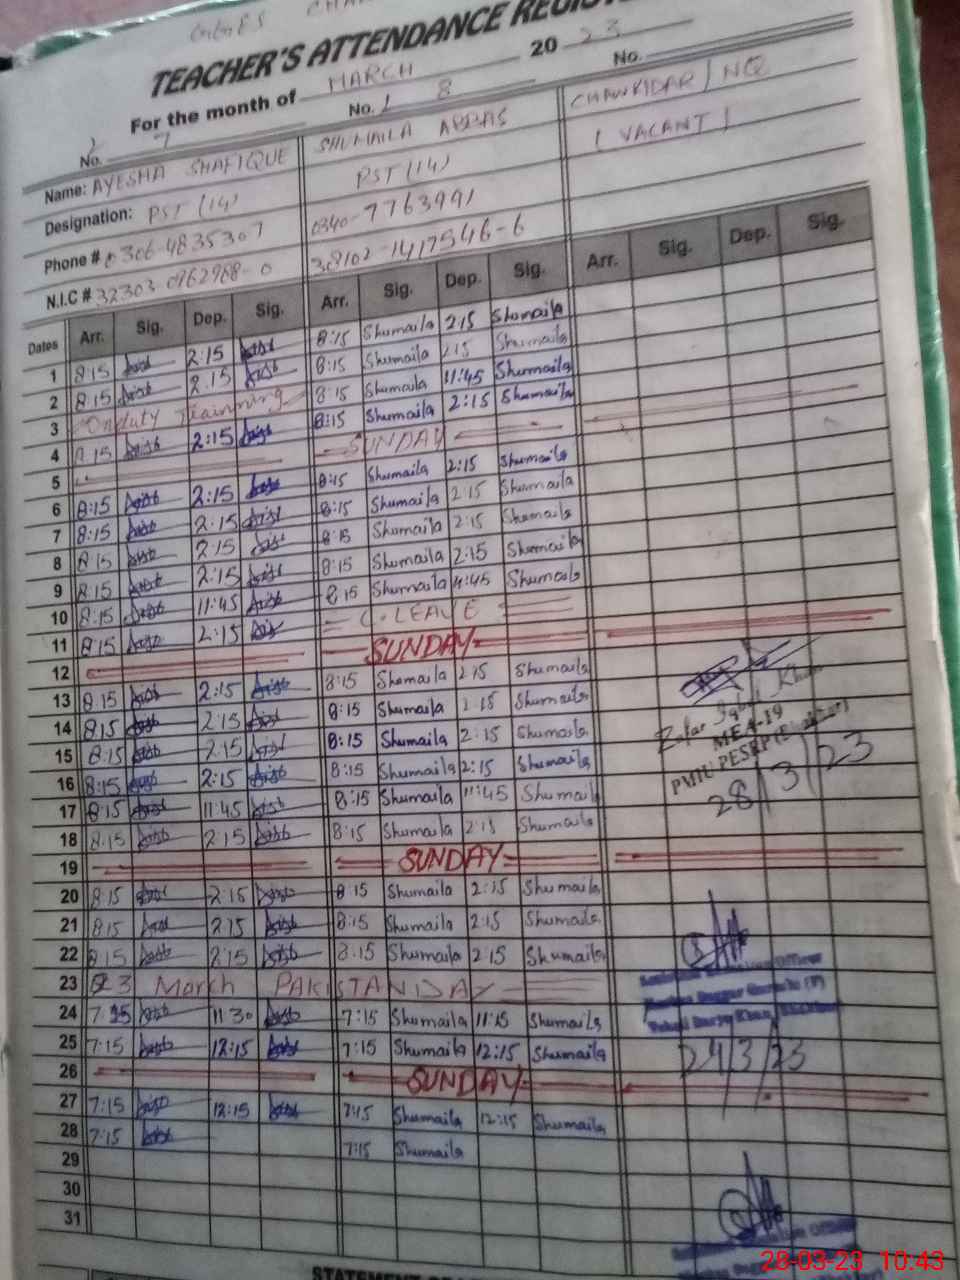 TEACHER'S ATTENDANCE REGIS
For the month of MARCH 2023
No. 7 No. 8 No.
Name: AYESHA SHAFIQUE SHUMAILA ABBAS CHAWKIDAR / NQ
Designation: PST (14) PST (14) (VACANT)
Phone # 0306-4835307 0340-7763991
N.I.C # 32303 0962988-0 38102-1417546-6
Dates Arr. Sig. Dep. Sig. Arr. Sig. Dep. Sig. Arr. Sig. Dep. Sig.
1 8:15 2:15 8:15 Shumaila 2:15 Shumaila
2 8:15 2:15 8:15 Shumaila 2:15 Shumaila
3 Onduty Trainning 8:15 Shumaila 11:45 Shumaila
4 8:15 2:15 8:15 Shumaila 2:15 Shumaila
5 SUNDAY
6 8:15 2:15 8:15 Shumaila 2:15 Shumaila
7 8:15 2:15 8:15 Shumaila 2:15 Shumaila
8 8:15 2:15 8:15 Shumaila 2:15 Shumaila
9 8:15 2:15 8:15 Shumaila 2:15 Shumaila
10 8:15 11:45 8:15 Shumaila 4:45 Shumaila
11 8:15 2:15 C.LEAVE
12 SUNDAY
13 8:15 2:15 8:15 Shumaila 2:15 Shumaila
14 8:15 2:15 8:15 Shumaila 2:15 Shumaila
15 8:15 2:15 8:15 Shumaila 2:15 Shumaila
16 8:15 2:15 8:15 Shumaila 2:15 Shumaila
17 8:15 11:45 8:15 Shumaila 11:45 Shumaila
18 8:15 2:15 8:15 Shumaila 2:15 Shumaila
Zafar Iqbal Khan
MEA-19
PMIU PESRP
28/3/23
19 SUNDAY
20 8:15 2:15 8:15 Shumaila 2:15 Shumaila
21 8:15 2:15 8:15 Shumaila 2:15 Shumaila
22 8:15 2:15 8:15 Shumaila 2:15 Shumaila
23 23 March PAKISTAN DAY
24 7:15 11:30 7:15 Shumaila 11:15 Shumaila
25 7:15 12:15 7:15 Shumaila 12:15 Shumaila
24/3/23
26 SUNDAY
27 7:15 12:15 7:15 Shumaila 12:15 Shumaila
28 7:15 7:15 Shumaila
29
30
31
28-03-23 10:43